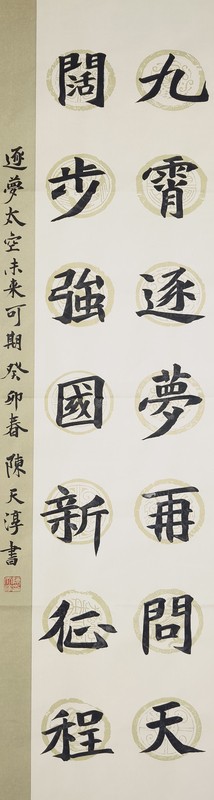 九霄逐夢再問天
闊步強國新征程
逐夢太空未来可期癸卯春陳天淳書